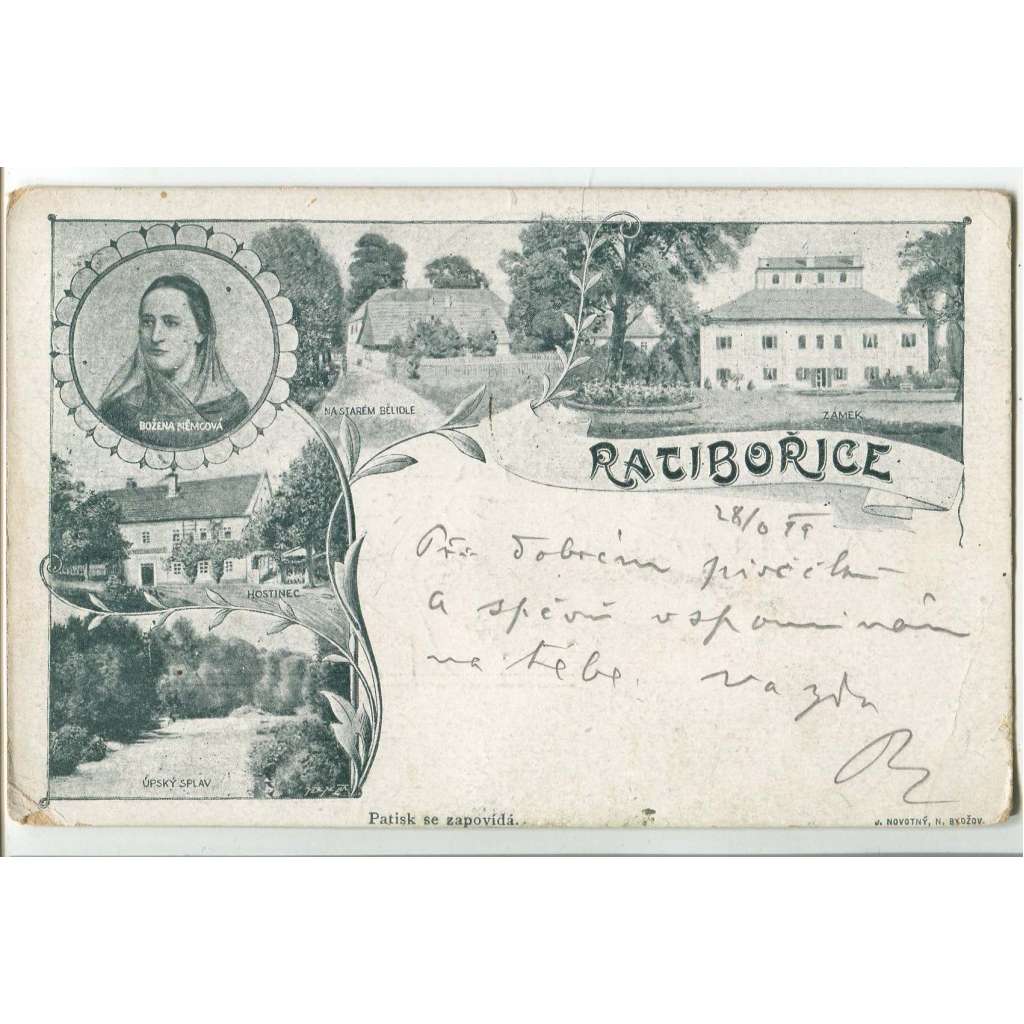 BOŽENA NĚMCOVÁ
NA STARÉM BĚLIDLE
ZÁMEK
RATIBOŘICE
HOSTINEC
ÚPSKÝ SPLAV
Při dobrém pivéčku
a spěvu vspomínám
na tebe. na zdar
Patisk se zapovídá.
J. NOVOTNÝ, N. BYDŽOV.